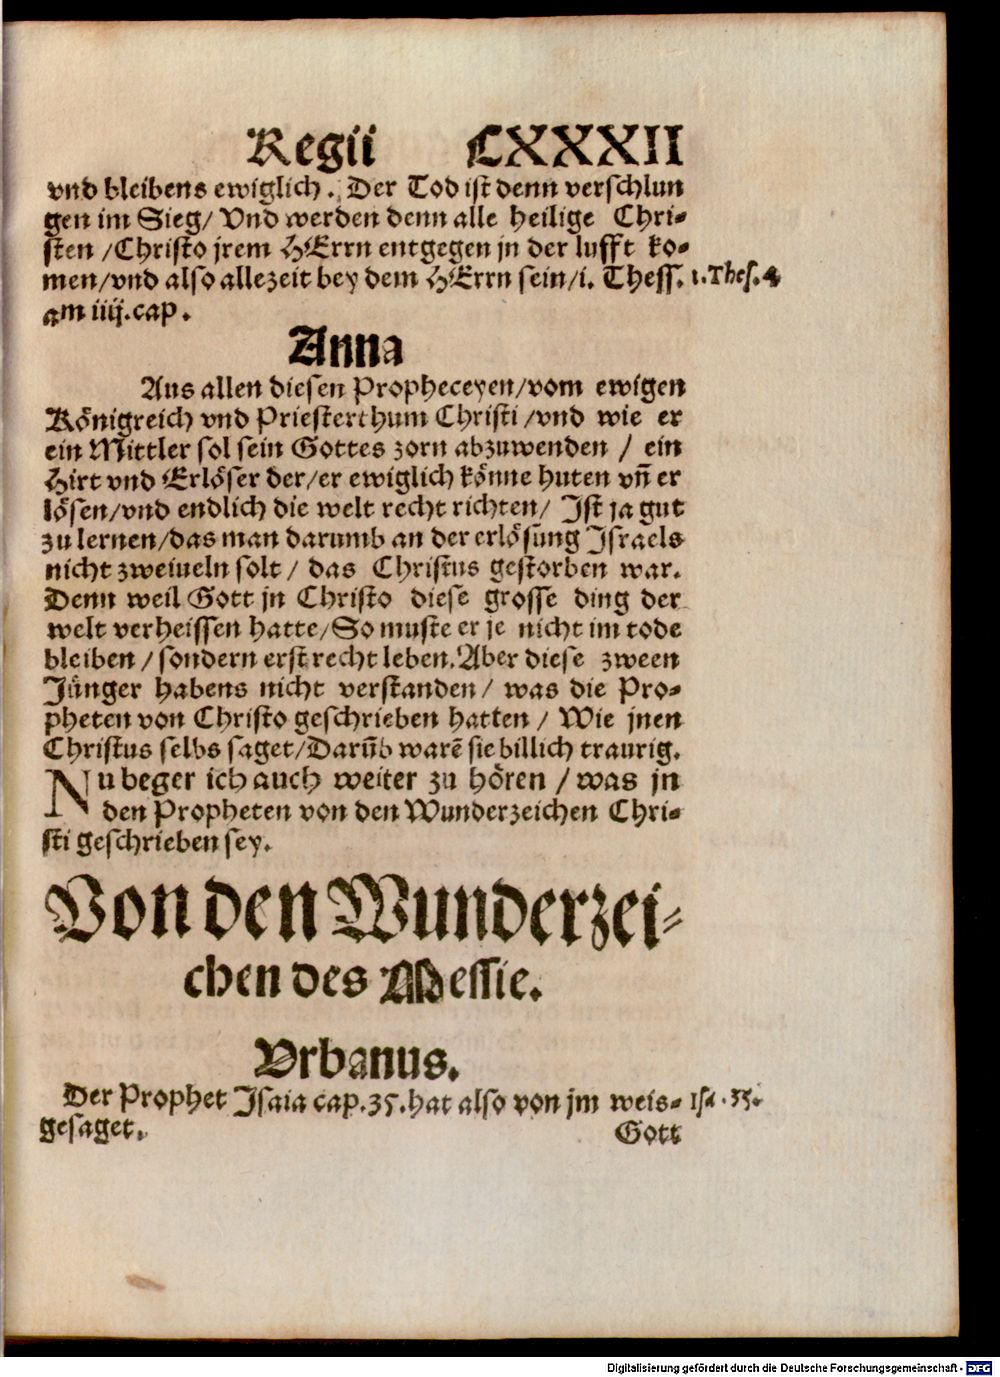 Regii CXXXII
vnd bleibens ewiglich. Der Tod ist denn verschlun
gen im Sieg/ Vnd werden denn alle heilige Chri-
sten /Christo jrem HErrn entgegen jn der lufft ko-
men/vnd also allezeit bey dem HErrn sein/i. Thess. 1.Thes.4
am iiij.cap.
Anna
Aus allen diesen Propheceyen/vom ewigen
Königreich vnd Priesterthum Christi /vnd wie er
ein Mittler sol sein Gottes zorn abzuwenden / ein
Hirt vnd Erlöser der/er ewiglich könne huten vñ er
lösen/vnd endlich die welt recht richten/ Ist ja gut
zu lernen/das man darumb an der erlösung Israels
nicht zweiueln solt / das Christus gestorben war.
Denn weil Gott jn Christo diese grosse ding der
welt verheissen hatte/So muste er je nicht im tode
bleiben / sondern erst recht leben.Aber diese zween
Jünger habens nicht verstanden/ was die Pro-
pheten von Christo geschrieben hatten / Wie jnen
Christus selbs saget/Darũb warē sie billich traurig.
Nu beger ich auch weiter zu hören / was jn
den Propheten von den Wunderzeichen Chri-
sti geschrieben sey.
Von den Wunderzei-
chen des Messie.
Vrbanus.
Der Prophet Isaia cap.35.hat also von jm weis- Isa.35.
gesaget.
Gott
Digitalisierung gefördert durch die Deutsche Forschungsgemeinschaft - DFG